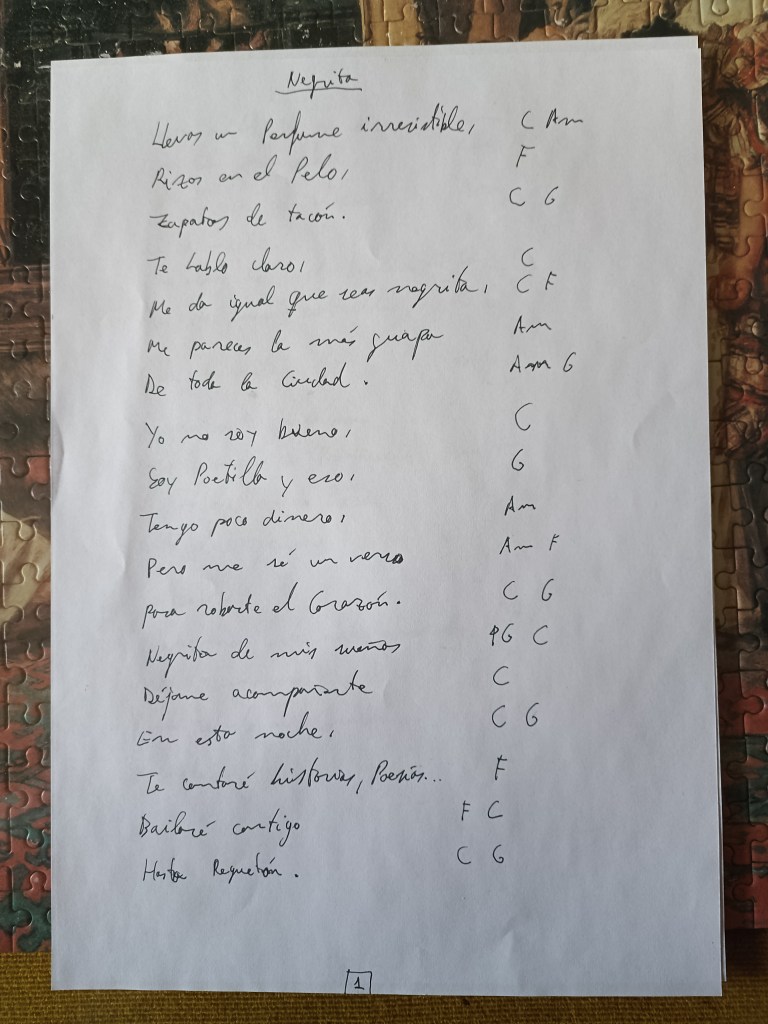 Negrita
Llevas un Perfume irresistible, C Am
Rizos en el Pelo, F
Zapatos de tacón. C G
Te hablo claro, C
Me da igual que seas negrita, C F
Me pareces la más guapa Am
De toda la Ciudad. Am G
Yo no soy bueno, C
Soy Poetilla y eso, G
Tengo poco dinero, Am
Pero me sé un verso Am F
para robarte el Corazón. C G
Negrita de mis sueños G C
Déjame acompañarte C
En esta noche, C G
Te contaré historias, Poesías... F
Bailaré contigo F C
Hasta Reguetón. C G
1